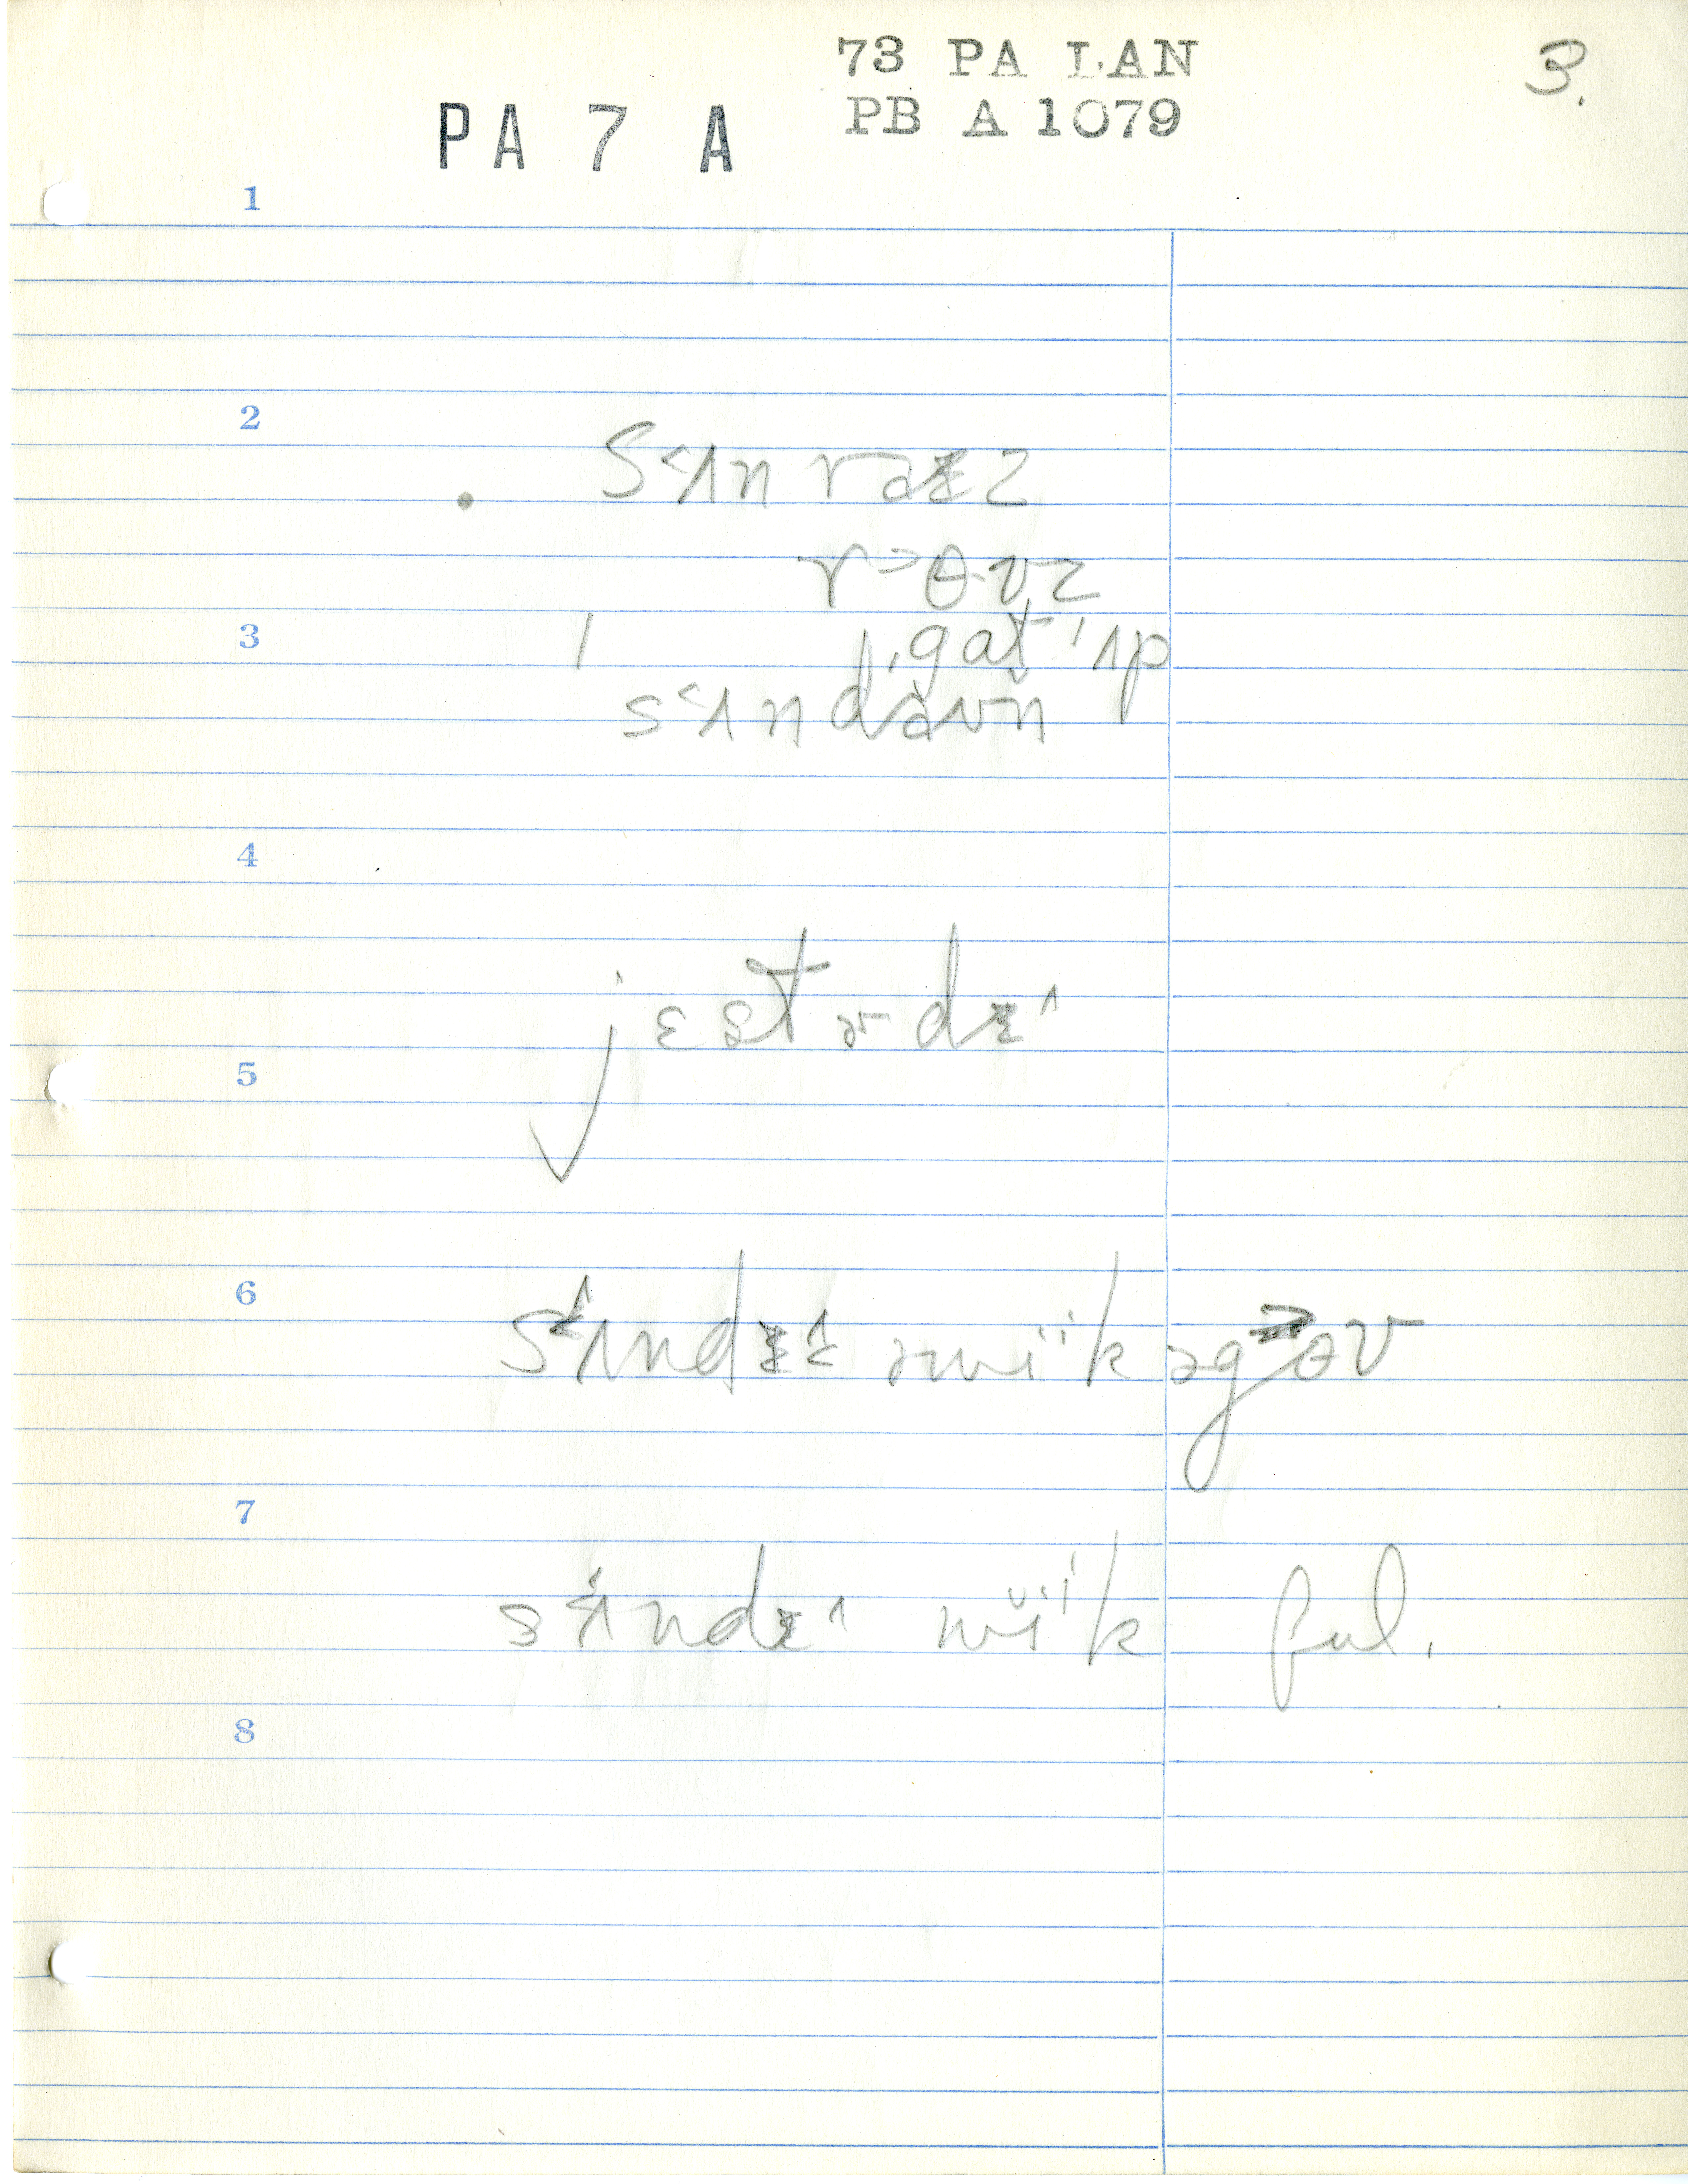 73 PA LAN
3.
PB A 1079
PA 7 A
1
2
s˂ʌn raɪz
r˃ɵʊz
3
ˌgat ˈʌp
s˂ʌndaʊn
4
jɛstɚdɪ^
5
6
s˂ʌndɪ^ əwiˈk əg˃ɵʊ
7
s˂ʌndɪ^ wĭiˈk ful.
8